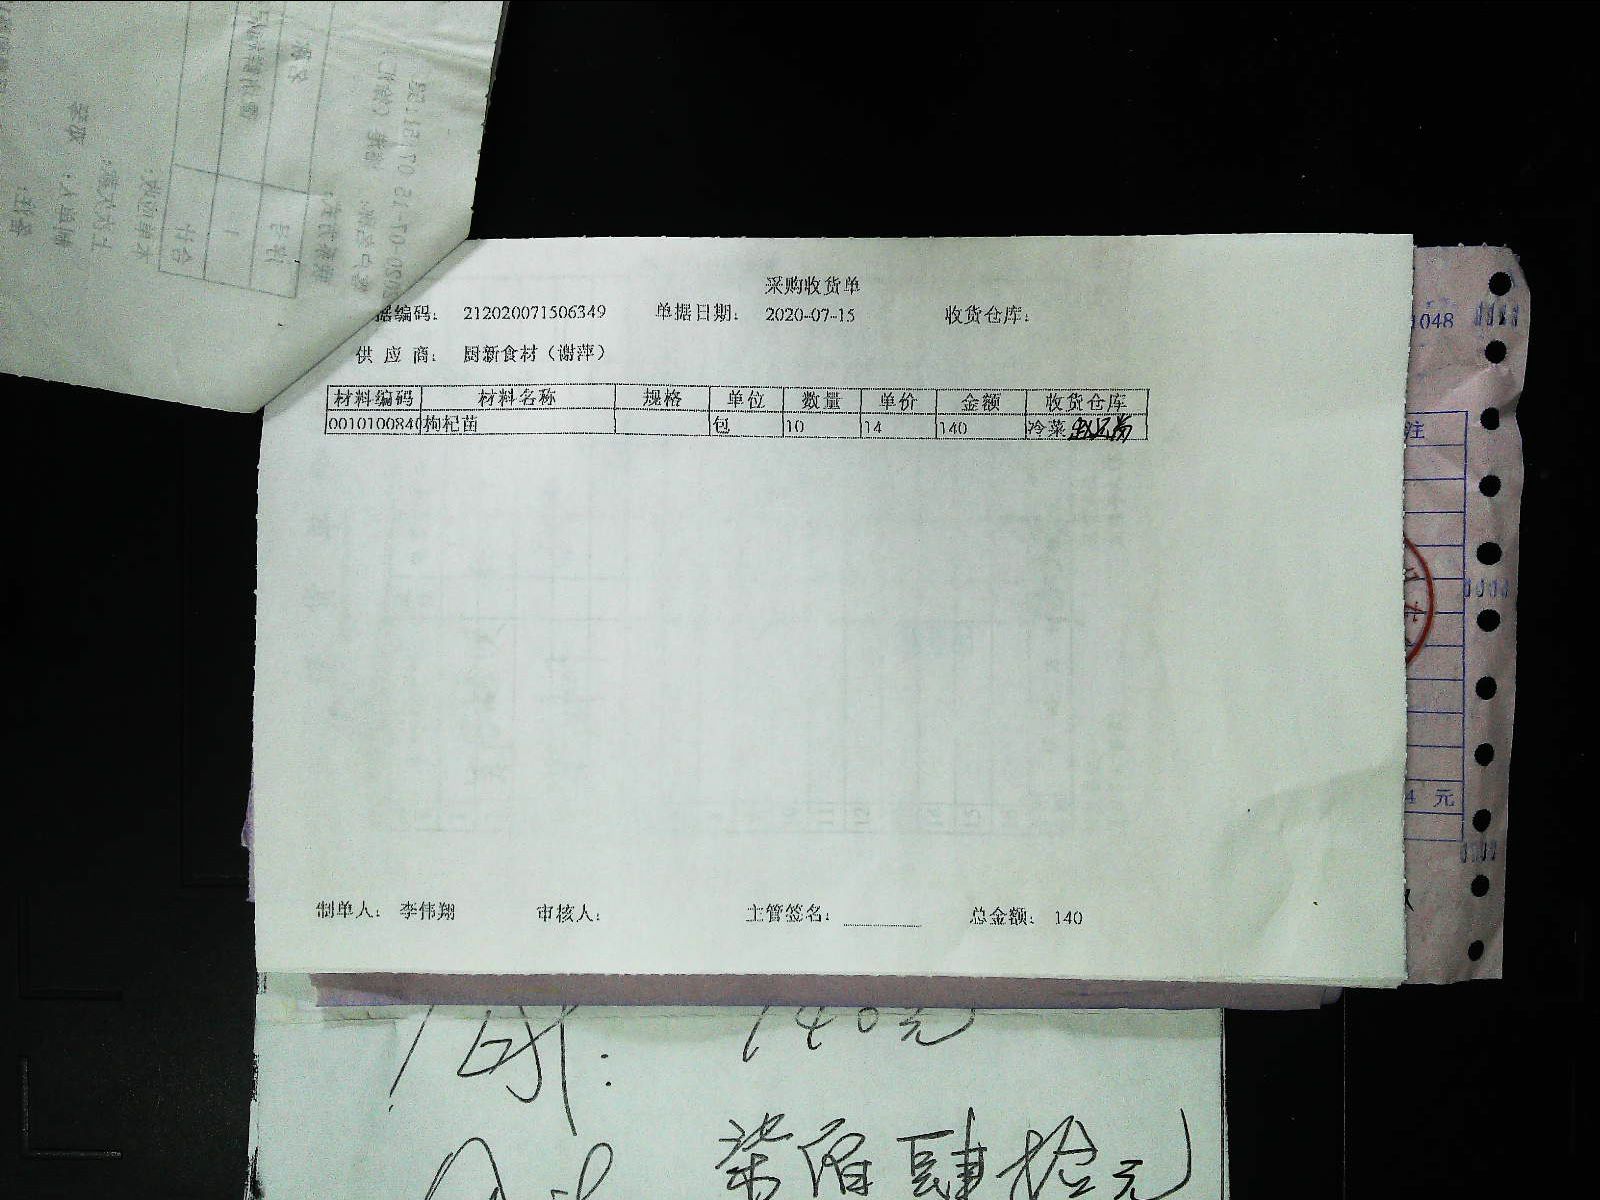 采购收货单
据编码: 212020071506349 单据日期: 2020-07-15 收货仓库:
供应商: 厨新食材（谢萍）
材料编码 材料名称 规格 单位 数量 单价 金额 收货仓库
0010100840 枸杞苗 包 10 14 140 冷菜
制单人: 李伟翔 审核人: 主管签名: 总金额: 140
1048
注
4 元
140元
柒佰肆拾元